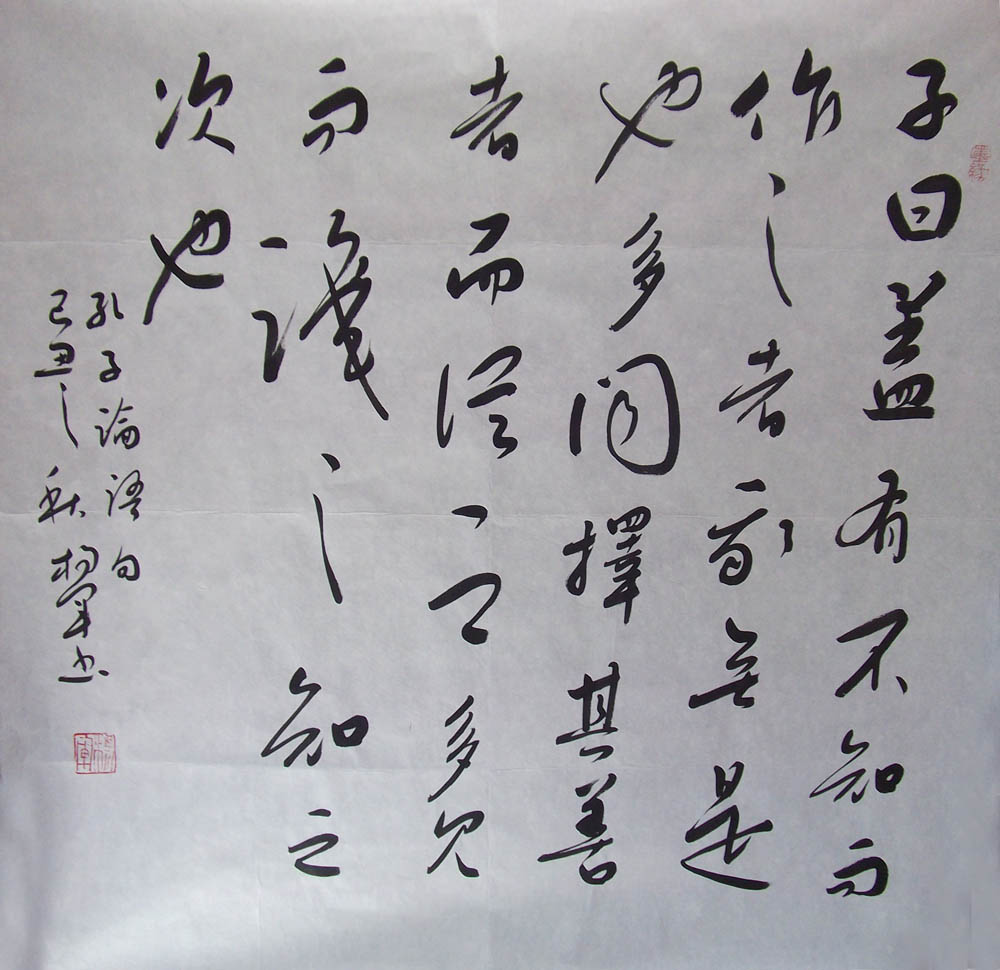 子曰盖有不知而
作之者我無是
也多聞擇其善
者而從之多見
而識之知之
次也
孔子論語句
己丑之秋楊軍书
楊軍